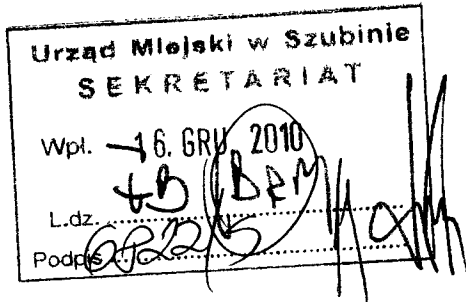 Urząd Miejski w Szubinie
SEKRETARIAT
Wpł. 16. GRU 2010
BRM
L.dz.
Podpis